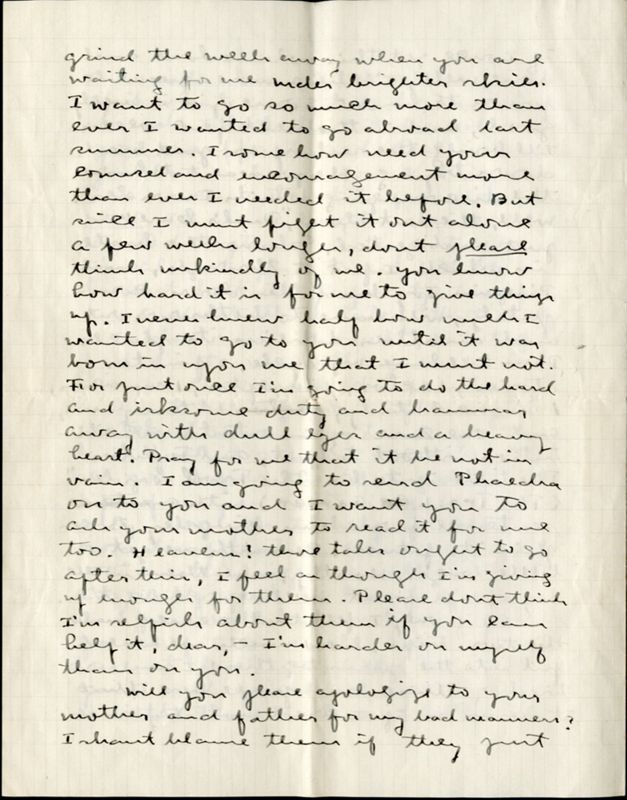 grind the weeks away when you are
waiting for me under brighter skies.
I want to go so much more than
ever I wanted to go abroad last
summer. I somehow need your
counsel and encouragement more
than ever I needed it before. But
still I must fight it out alone
a few weeks longer, dont please
think unkindly of me. You know
how hard it is for me to give things
up. I never knew half how much I
wanted to go to you until it was
born in upon me that I must not.
For just once I'm going to do the hard
and irksome duty and hammer
away with dull eyes and a heavy
heart. Pray for me that it be not in
vain. I am going to send Phaedra
on to you and I want you to
ask your mother to read it for me
too. Heavens! those tales ought to go
after this, I feel as though I'm giving
up enough for them. Please dont think
I'm selfish about them if you can
help it, dear, - I'm harder on myself
than on you.
Will you please apologize to your
mother and father for my bad manners?
I shant blame them if they just